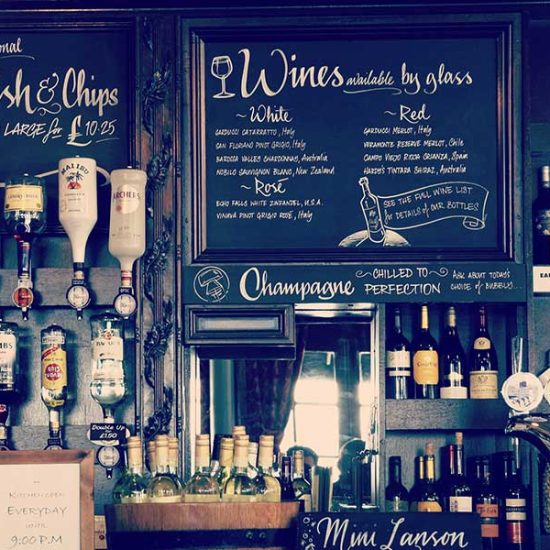 onal
sh & Chips
LARGE for £10·25
Wines available by glass
~White
GARDUCCI CATARRATTO, Italy
SAN FLORIANO PINOT GRIGIO, Italy
BAROCCA VALLEY CHARDONNAY, Australia
NOBILO SAUVIGNON BLANC, New Zealand
~Rosé
ECHO FALLS WHITE ZINFANDEL, U.S.A.
PINOT GRIGIO ROSÉ, Italy
~Red
GARDUCCI MERLOT, Italy
VERAMONTE RESERVE MERLOT, Chile
CAMPO VIEJO RIOJA CRIANZA, Spain
HARDYS TINTARA SHIRAZ, Australia
SEE THE FULL WINE LIST
for DETAILS of OUR BOTTLES
Champagne ~CHILLED TO~ PERFECTION
ASK ABOUT TODAY'S
CHOICE OF BUBBLY...
MALIBU
ARCHERS
Double Up
£1.50
KITCHEN OPEN
EVERYDAY
UNTIL
9:00 P.M
Mini Lanson